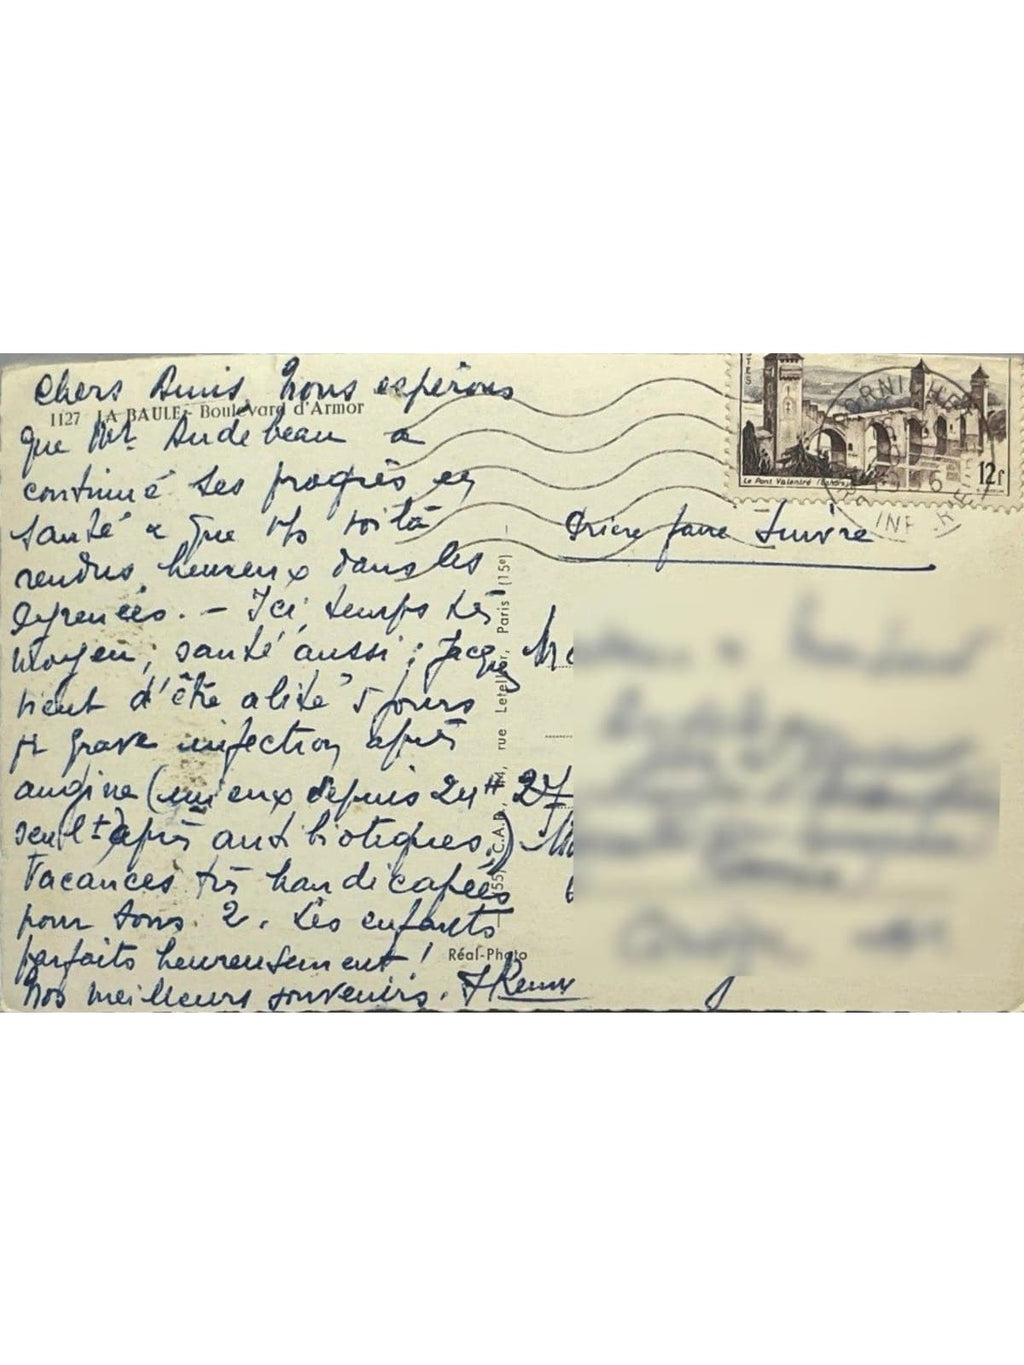 Chers Amis Nous espérons
1127 LA BAULE - Boulevard d'Armor
que Mr Audebeau a
continué ses progrès en
santé & que vs voilà
rendus heureux dans les
Pyrénées. - Ici, temps très
moyen, santé aussi; Jacques
vient d'être alité 5 jours
pr grave infection après
angine (mieux depuis 24 H
seult après antibiotiques.)
Vacances très handicapées
pour tous 2. Les enfants
parfaits heureusement!
Nos meilleurs souvenirs.
Réal-Photo
C.A.P., rue Letellier, Paris (15e)
TES
Le Pont Valentré (Cahors)
12f
PORNICHET
Prière faire suivre
27